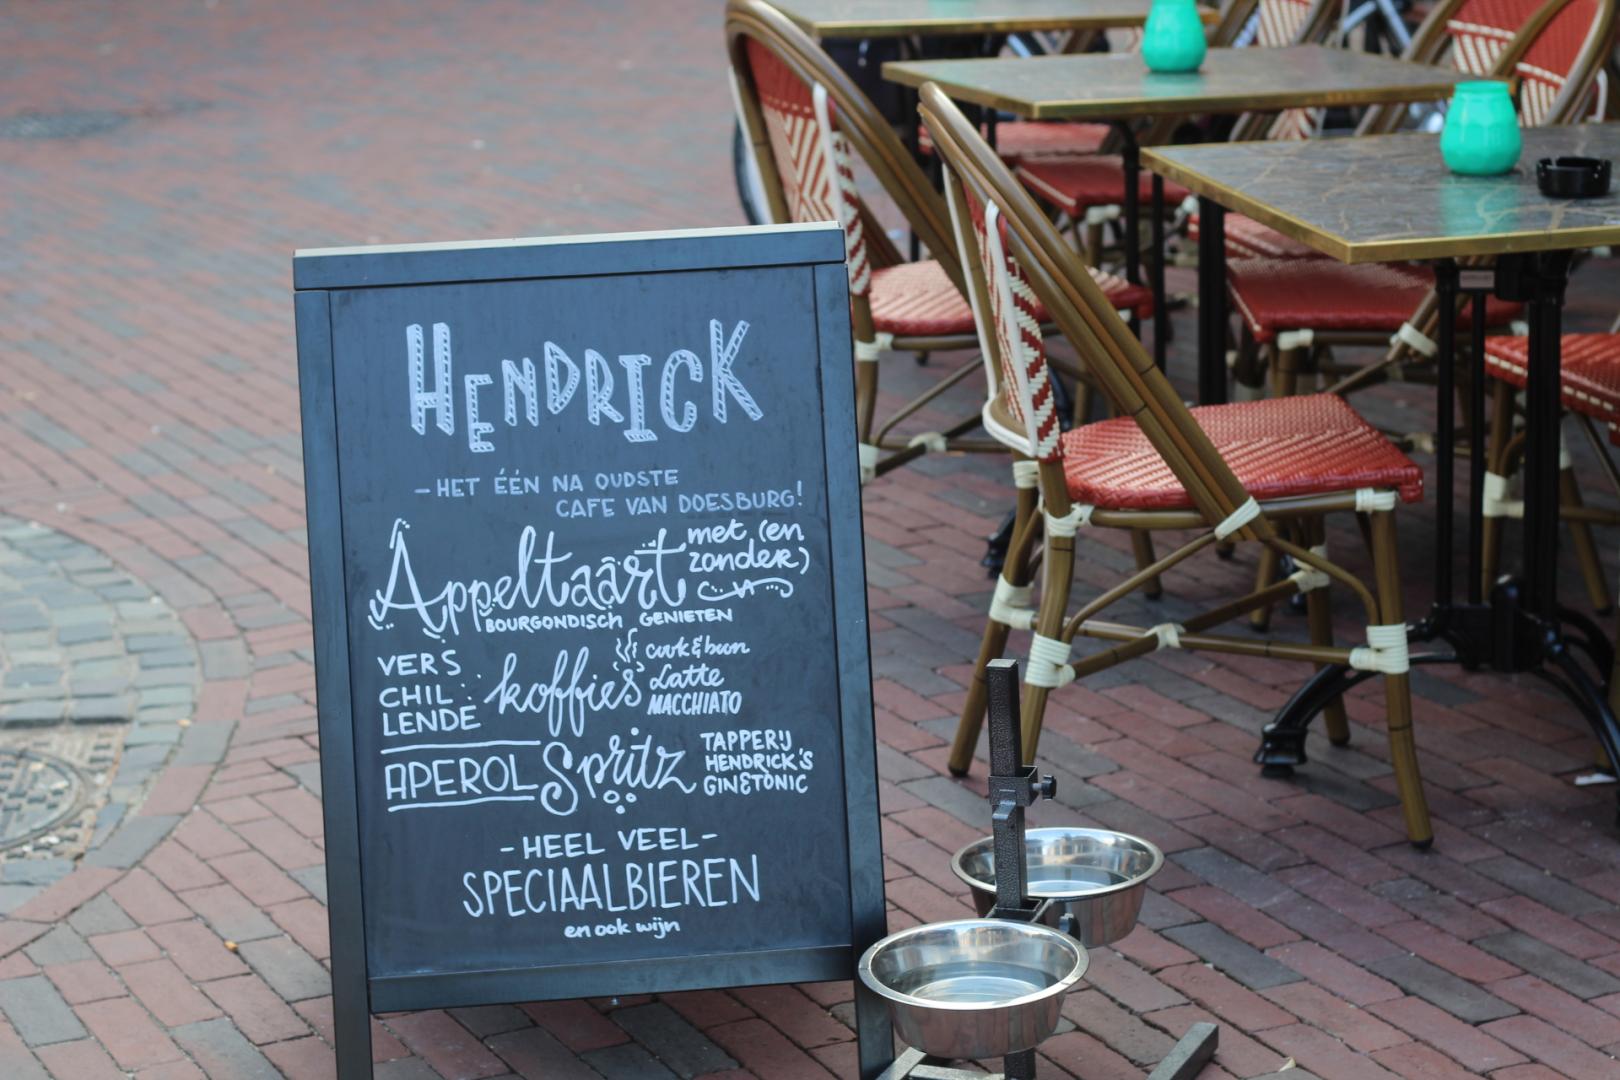 HENDRICK
- HET ÉÉN NA OUDSTE
CAFE VAN DOESBURG!
Appeltaart met (en
zonder)
BOURGONDISCH GENIETEN
VERS
CHIL
LENDE
koffies
cook & bun
Latte
MACCHIATO
APEROL Spritz
TAPPERIJ
HENDRICK'S
GIN&TONIC
- HEEL VEEL -
SPECIAALBIEREN
en ook wijn